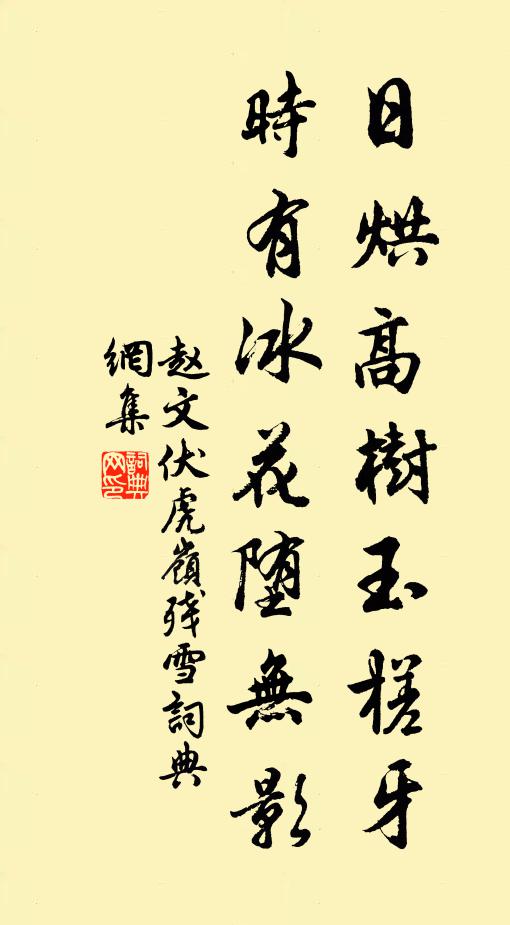 日烘高樹玉槎牙
時有冰花堕無影
赵文伏虎嶺残雪詞典
網集
詞典网印